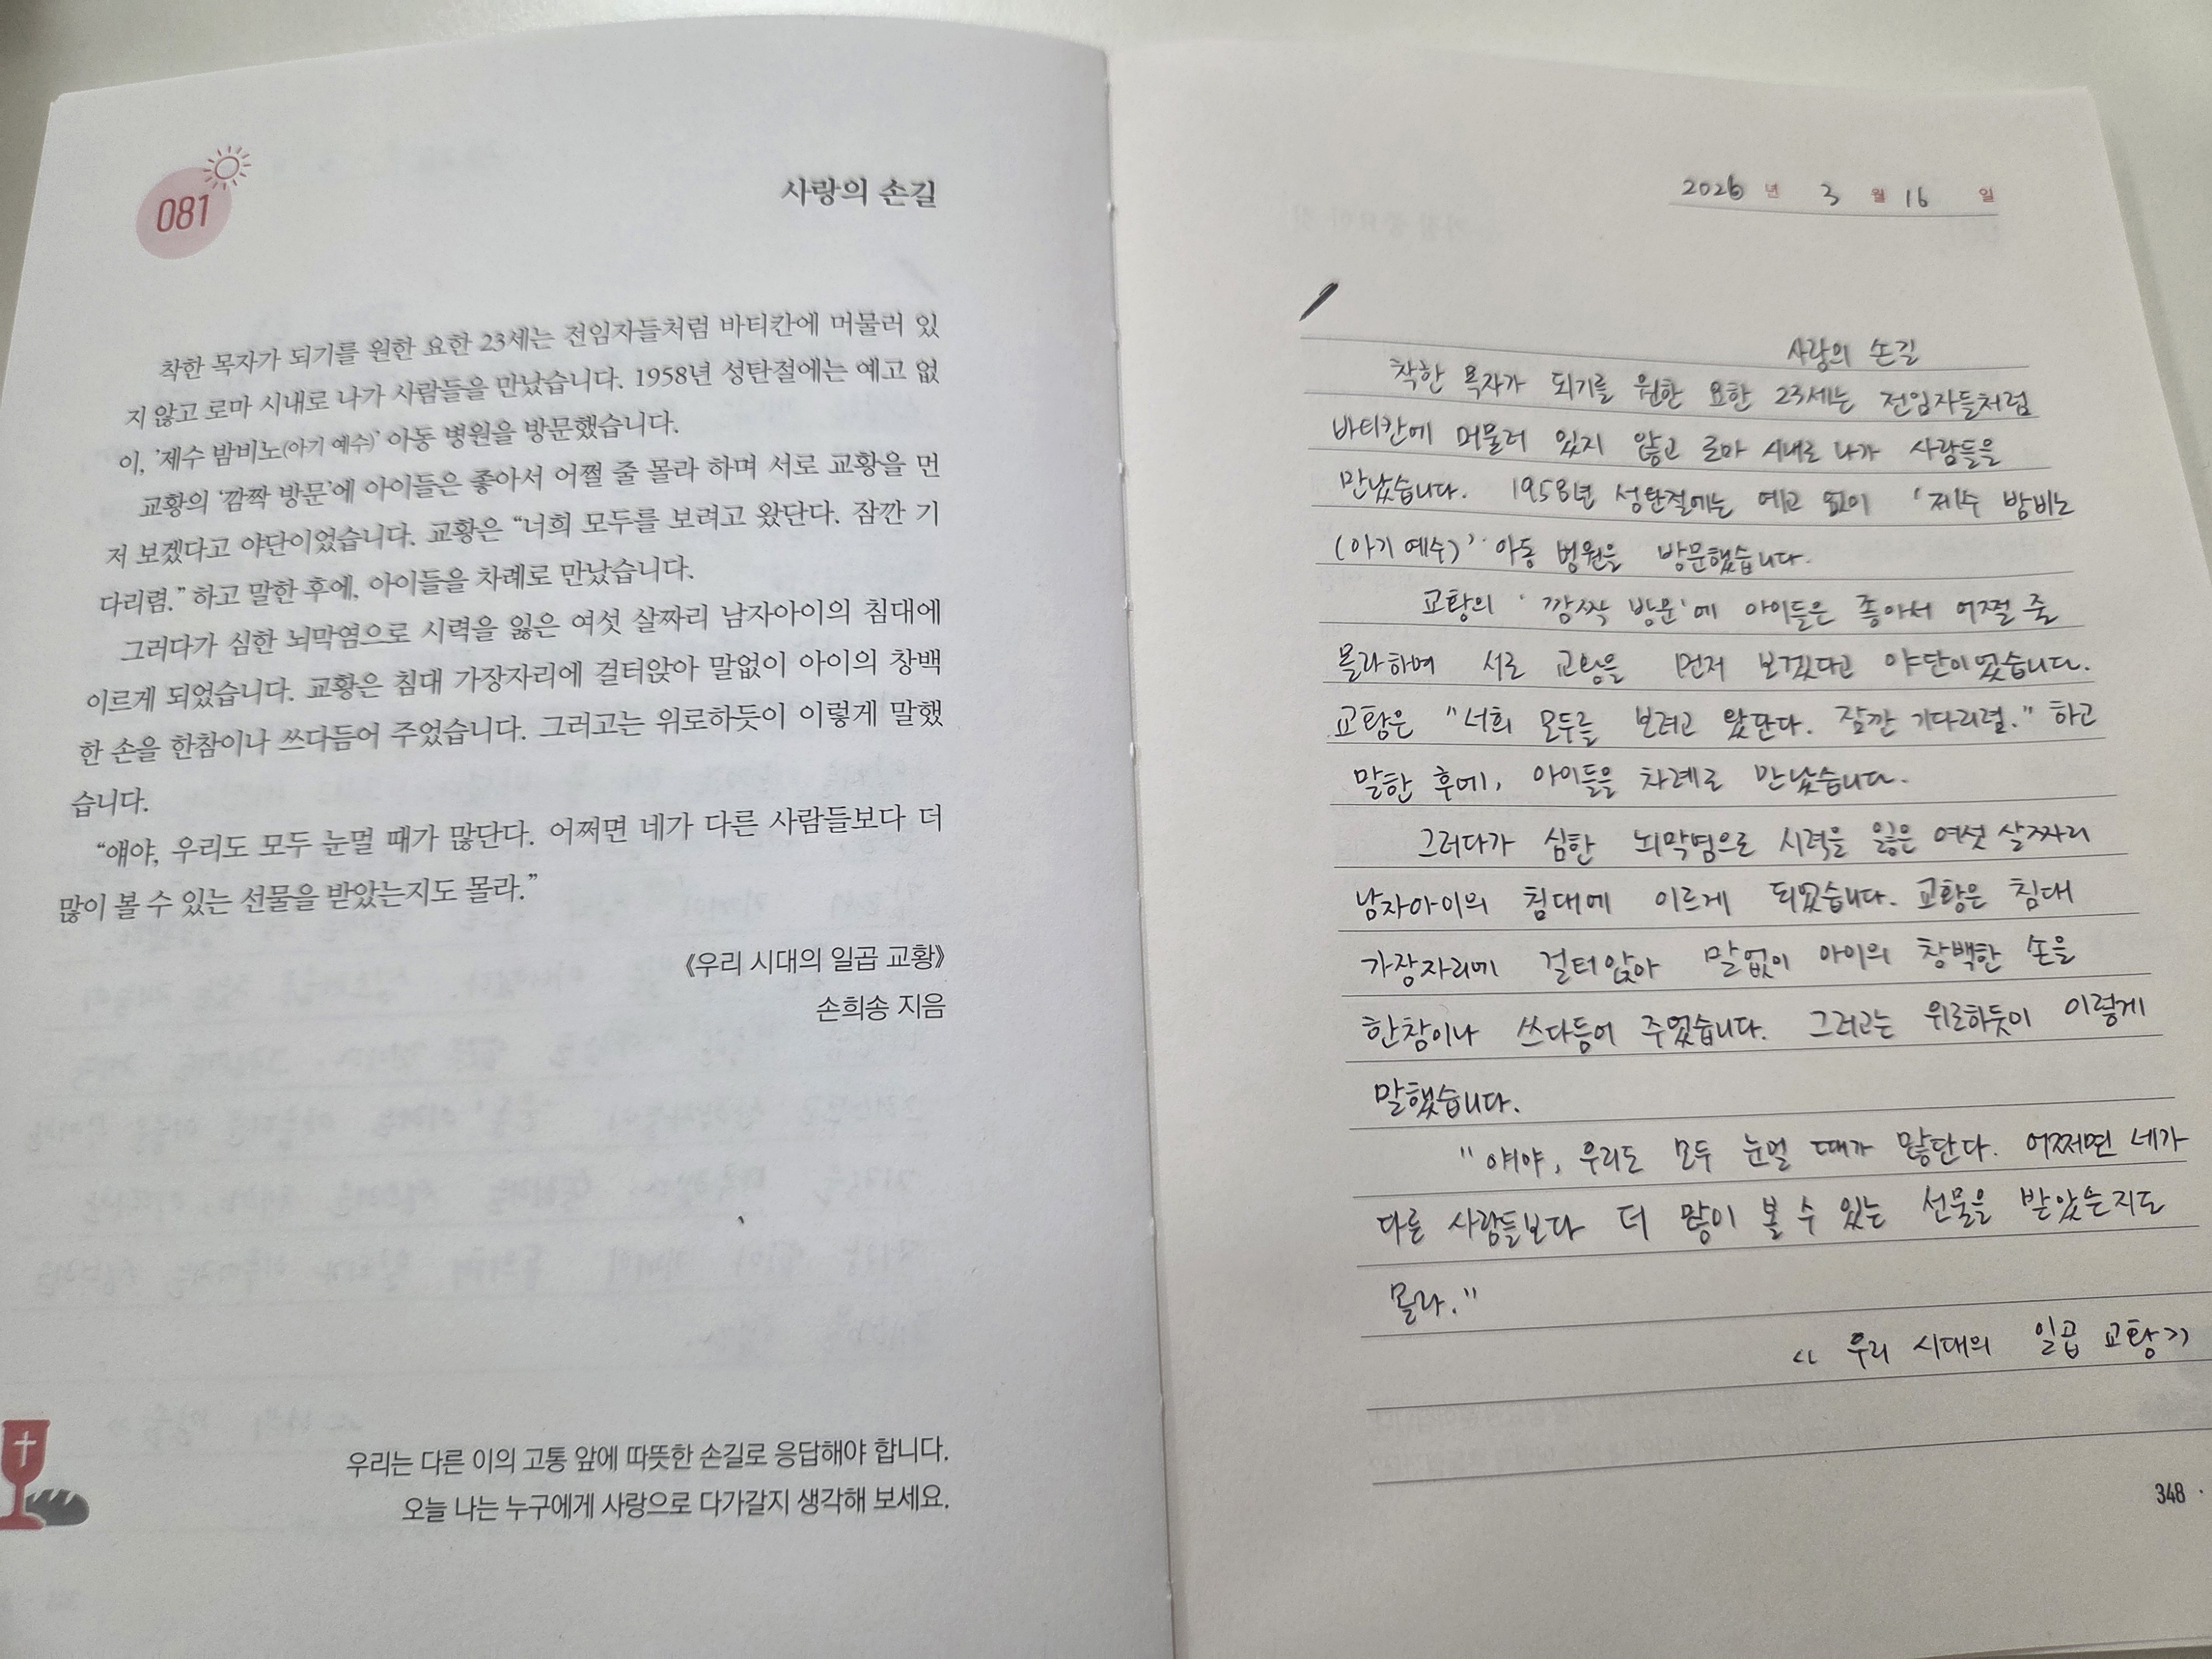 081
사랑의 손길
착한 목자가 되기를 원한 요한 23세는 전임자들처럼 바티칸에 머물러 있
지 않고 로마 시내로 나가 사람들을 만났습니다. 1958년 성탄절에는 예고 없
이, '제수 밤비노(아기 예수)' 아동 병원을 방문했습니다.
교황의 '깜짝 방문'에 아이들은 좋아서 어쩔 줄 몰라 하며 서로 교황을 먼
저 보겠다고 야단이었습니다. 교황은 “너희 모두를 보려고 왔단다. 잠깐 기
다리렴.” 하고 말한 후에, 아이들을 차례로 만났습니다.
그러다가 심한 뇌막염으로 시력을 잃은 여섯 살짜리 남자아이의 침대에
이르게 되었습니다. 교황은 침대 가장자리에 걸터앉아 말없이 아이의 창백
한 손을 한참이나 쓰다듬어 주었습니다. 그러고는 위로하듯이 이렇게 말했
습니다.
“얘야, 우리도 모두 눈멀 때가 많단다. 어쩌면 네가 다른 사람들보다 더
많이 볼 수 있는 선물을 받았는지도 몰라.”
《우리 시대의 일곱 교황》
손희송 지음
우리는 다른 이의 고통 앞에 따뜻한 손길로 응답해야 합니다.
오늘 나는 누구에게 사랑으로 다가갈지 생각해 보세요.
2026 년 3 월 16 일
사랑의 손길
착한 목자가 되기를 원한 요한 23세는 전임자들처럼
바티칸에 머물러 있지 않고 로마 시내로 나가 사람들을
만났습니다. 1958년 성탄절에는 예고 없이 '제수 밤비노
(아기 예수)' 아동 병원을 방문했습니다.
교황의 '깜짝 방문'에 아이들은 좋아서 어쩔 줄
몰라하며 서로 교황을 먼저 보겠다고 야단이었습니다.
교황은 "너희 모두를 보려고 왔단다. 잠깐 기다리렴." 하고
말한 후에, 아이들을 차례로 만났습니다.
그러다가 심한 뇌막염으로 시력을 잃은 여섯 살짜리
남자아이의 침대에 이르게 되었습니다. 교황은 침대
가장자리에 걸터앉아 말없이 아이의 창백한 손을
한참이나 쓰다듬어 주었습니다. 그러고는 위로하듯이 이렇게
말했습니다.
"얘야, 우리도 모두 눈멀 때가 많단다. 어쩌면 네가
다른 사람들보다 더 많이 볼 수 있는 선물을 받았는지도
몰라."
《우리 시대의 일곱 교황》
348